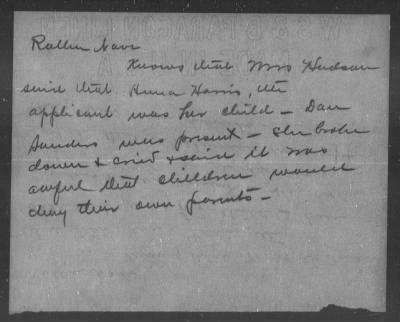 Knows that Mrs Hudson
said that Anna Harris, the
applicant was her child - Dan
Sanders was present - She broke
down & cried & said it was
awful that children would
deny their own parents -